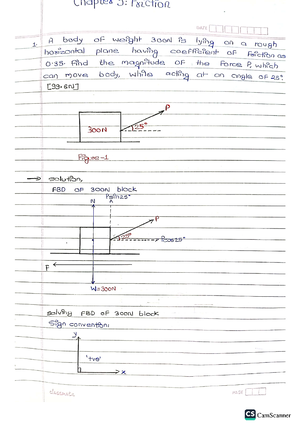 Chapter 3: Friction
DATE
1. A body of weight 300N is lying on a rough
horizontal plane having coefficient of friction as
0.35. Find the magnitude of the force P, which
can move body, while acting at an angle of 25°.
[99.8N]
P
300N
25°
Figure-1
→ solution,
FBD of 300N block
N
Psin25°
P
25°
Pcos25°
F
W=300N
solving FBD of 300N block
Sign convention:
y
'+ve'
x
PAGE
CS CamScanner